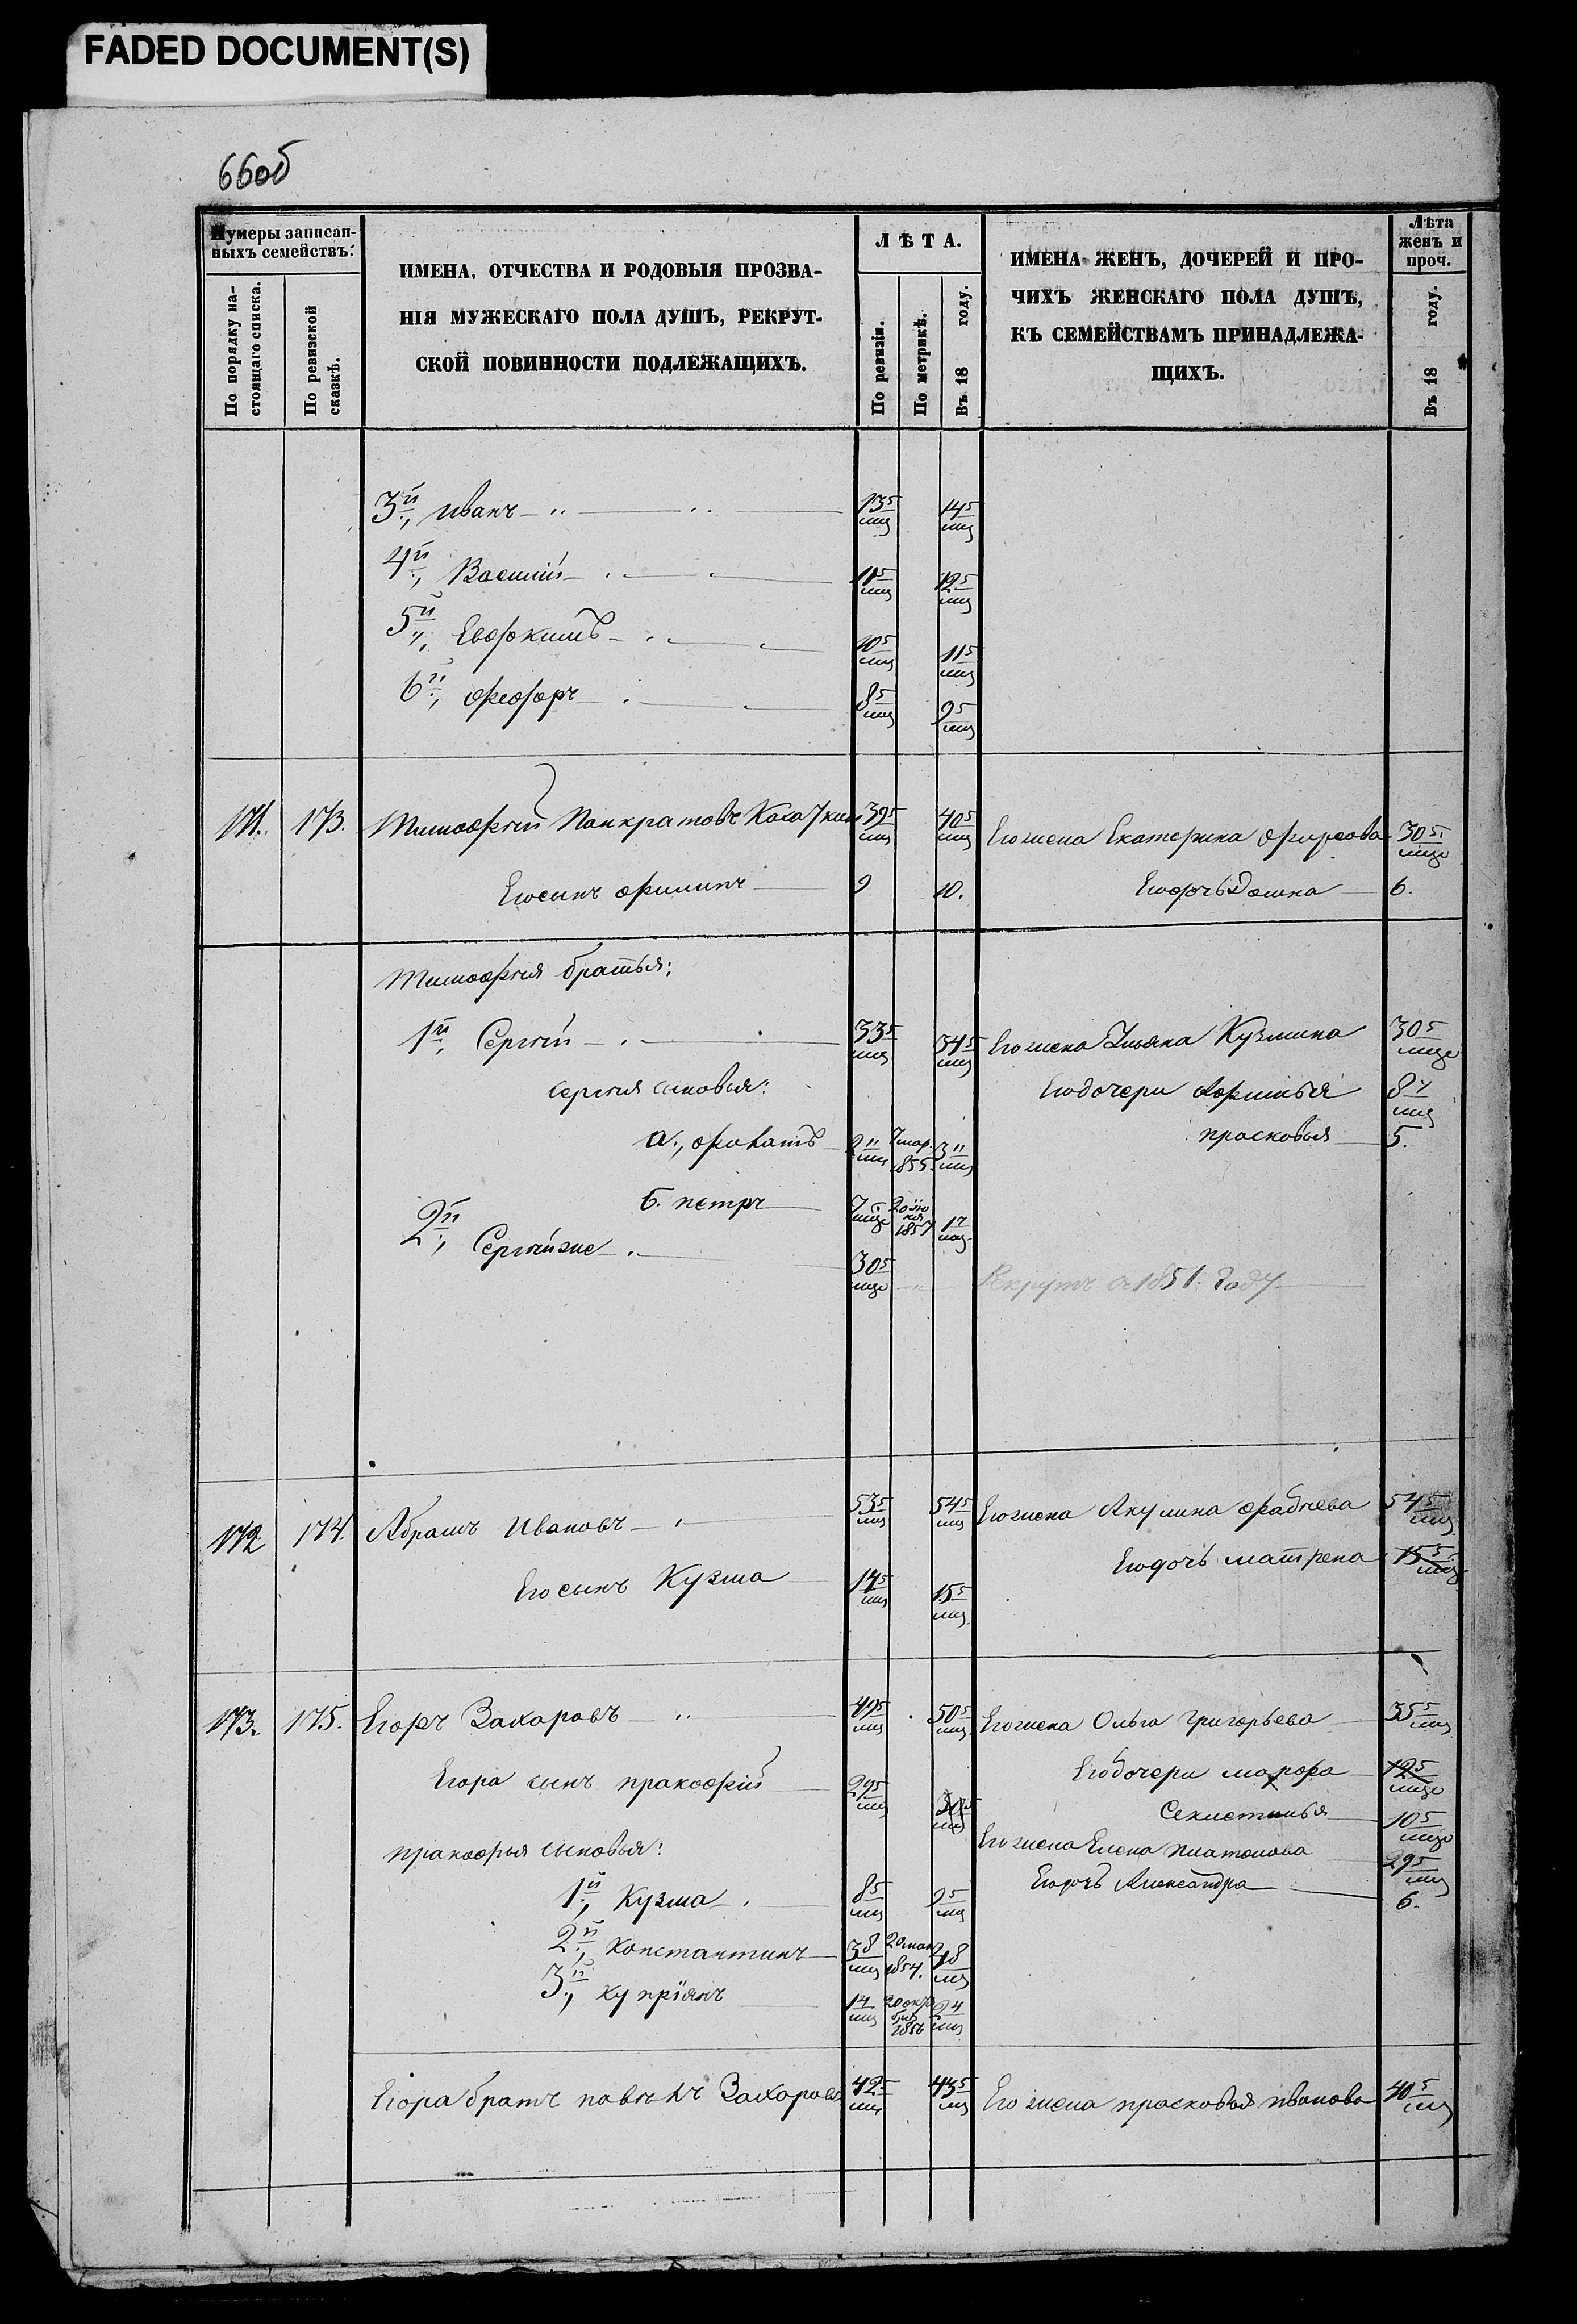 FADED DOCUMENT(S)
66об
Нумеры записан-
ныхъ семействъ.
По порядку на-
стоящаго списка.
По ревизской
сказкѣ.
ИМЕНА, ОТЧЕСТВА И РОДОВЫЯ ПРОЗВА-
НІЯ МУЖЕСКАГО ПОЛА ДУШЪ, РЕКРУТ-
СКОЙ ПОВИННОСТИ ПОДЛЕЖАЩИХЪ.
ЛѢТА.
По ревизіи.
По метрикѣ.
Въ 18 году.
ИМЕНА ЖЕНЪ, ДОЧЕРЕЙ И ПРО-
ЧИХЪ ЖЕНСКАГО ПОЛА ДУШЪ,
КЪ СЕМЕЙСТВАМЪ ПРИНАДЛЕЖА-
ЩИХЪ.
Лѣта
женъ и
проч.
Въ 18 году.
3й, Иванъ 13 5/мц 14 5/мц
4й, Василій 11 5/мц 12 5/мц
5й, Евдокимъ 10 5/мц 11 5/мц
6й, Федоръ 8 5/мц 9 5/мц
171. 173. Тимофѣй Панкратовъ 39 5/мц 40 5/мц Его жена Екатерина Фирсова 30 5/мцо
Его сынъ Филипъ 9 10. Его дочь Домна 6.
Тимофѣя братья:
1й, Сергѣй 33 5/мц 34 5/мц Его жена Ульяна Кузмина 30 5/мцо
Сергѣя сыновья: Его дочери Афимья 8 7/мц
а., 2 11/мц 7 мар. 1855. 3 11/мц Прасковья 5.
б. Петръ 7/мцо 20 іюня 1857 1 7/мц
2й, Сергѣй же 30 5/мцо Рекрутъ в 1851. Году
172 174. Абрамъ Ивановъ 53 5/мц 54 5/мц Его жена Акулина Фадѣева 54 5/мц
Его сынъ Кузма 14 5/мц 15 5/мц Его дочь Матрена 15 5/мц
173. 175. Егоръ Захаровъ 49 5/мц 50 5/мц Его жена Ольга Григорьева 35 5/мц
Его дочери Марфа 12 5/мцо
Егора сынъ Пракофій 29 5/мц 30 5/мц
Секлетинья 10 5/мцо
Пракофья сыновья: Его жена Елена Платонова 29 5/мц
Его дочь Александра 6.
1й, Кузма 8 5/мц 9 5/мц
2й, Константинъ 3 8/мц 20 мая 1854. 4 8/мц
3й, Купріянъ 1 4/мц 20 октября 1856 2 4/мц
Егора братъ Павелъ Захаровъ 42 5/мц 43 5/мц Его жена Прасковья Иванова 40 5/мц